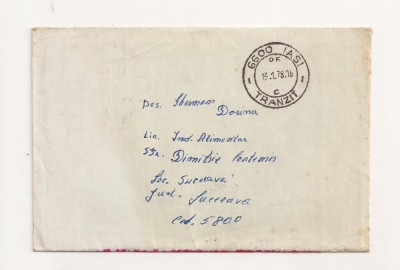 6600 IASI
OR
15.1.78.16
C
TRANZIT
Des. Ghemen
Dorina
Lic. Ind. Alimentar
Str. Dimitrie Cantemir
Loc. Suceava
Jud. Suceava
Cod. 5800